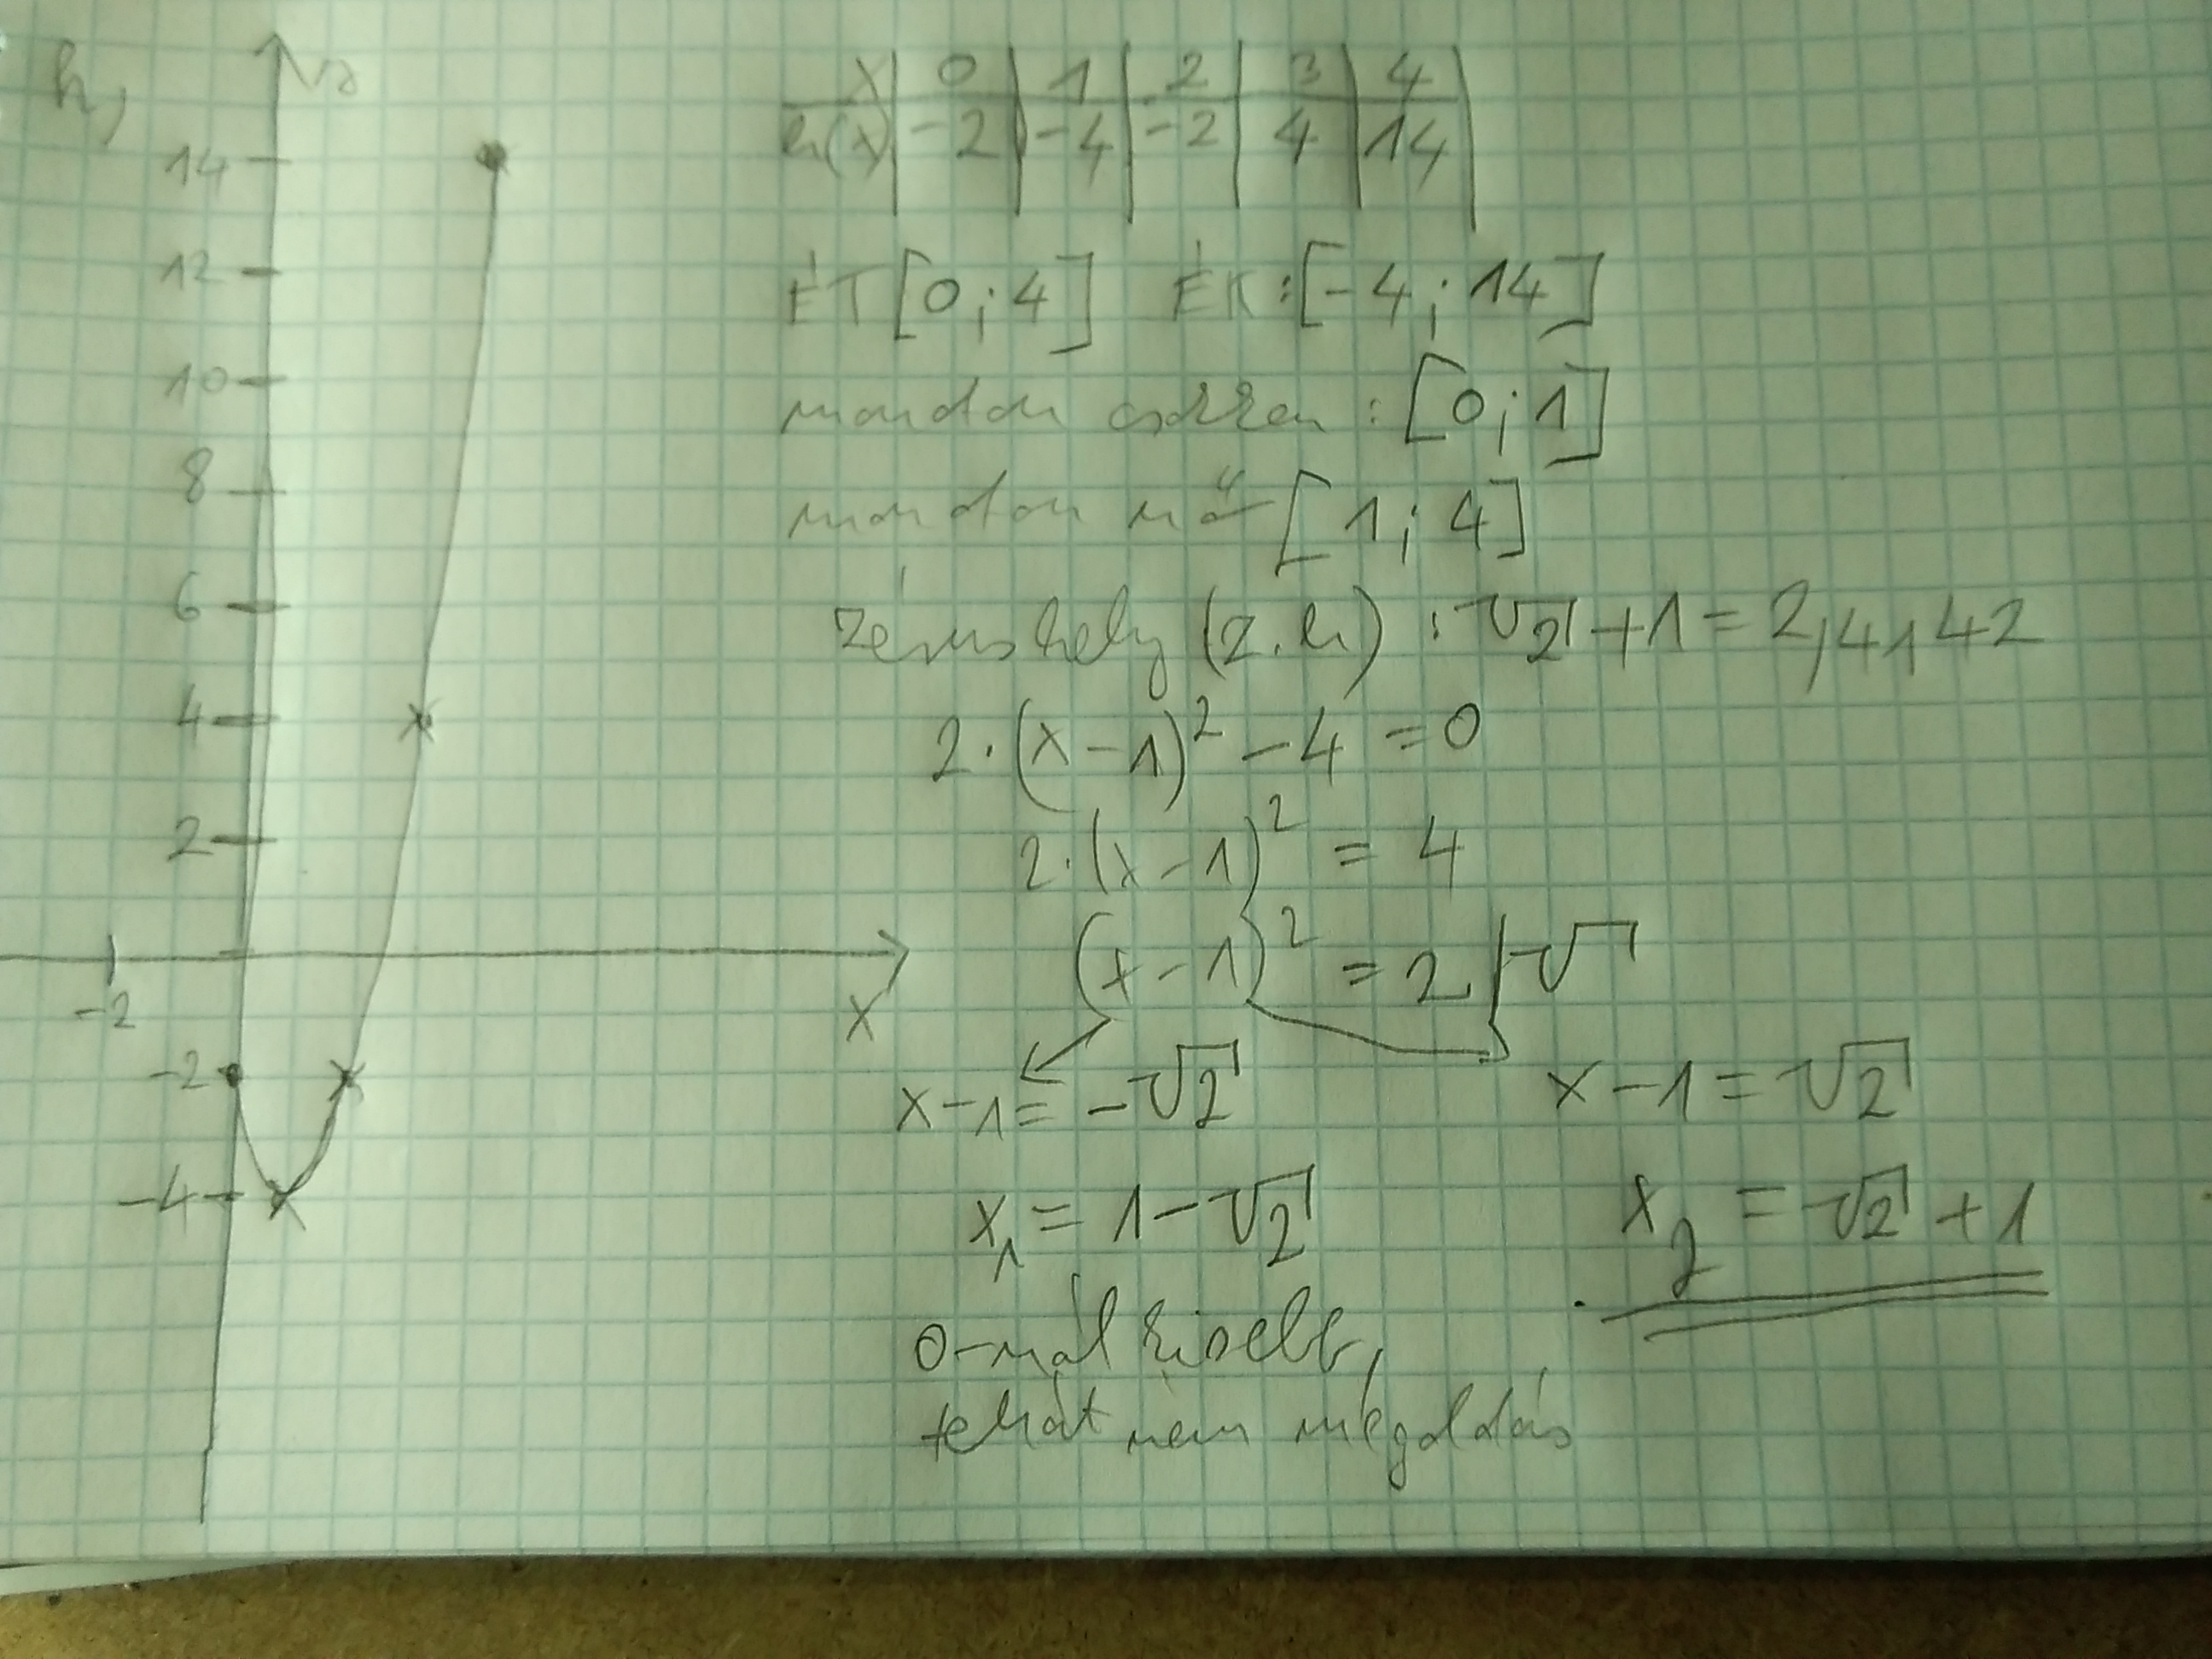 h,
y
14
12
10
8
6
4
2
-2
x
-2
-4
x | 0 | 1 | 2 | 3 | 4
h(x) | -2 | -4 | -2 | 4 | 14
ÉT [0;4] ÉK: [-4;14]
monoton csökken: [0;1]
monoton nő [1;4]
zérushely (z.h): √2+1=2,4142
2·(x-1)² -4 =0
2·(x-1)² = 4
(x-1)² = 2 |√
x-1= -√2 x-1=√2
x₁ = 1-√2 x₂ = √2 +1
0-nál kisebb,
tehát nem megoldás